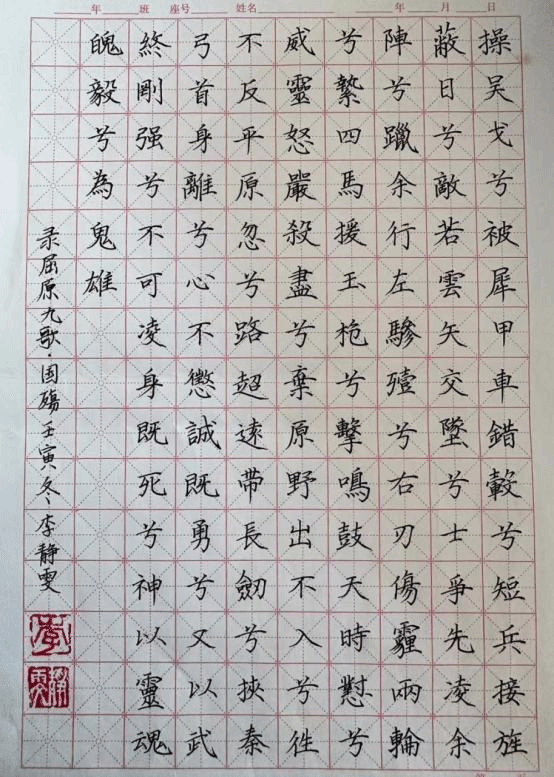 年 班 座号 姓名 年 月 日
操吴戈兮被犀甲車錯轂兮短兵接旌
蔽日兮敵若雲矢交墜兮士爭先凌余
陣兮躐余行左驂殪兮右刃傷霾兩輪
兮縶四馬援玉枹兮擊鳴鼓天時懟兮
威靈怒嚴殺盡兮棄原野出不入兮往
不反平原忽兮路超遠帶長劒兮挾秦
弓首身離兮心不懲誠既勇兮又以武
終剛强兮不可凌身既死兮神以靈魂
魄毅兮為鬼雄
录屈原九歌·国殇壬寅冬李静雯
李
静雯